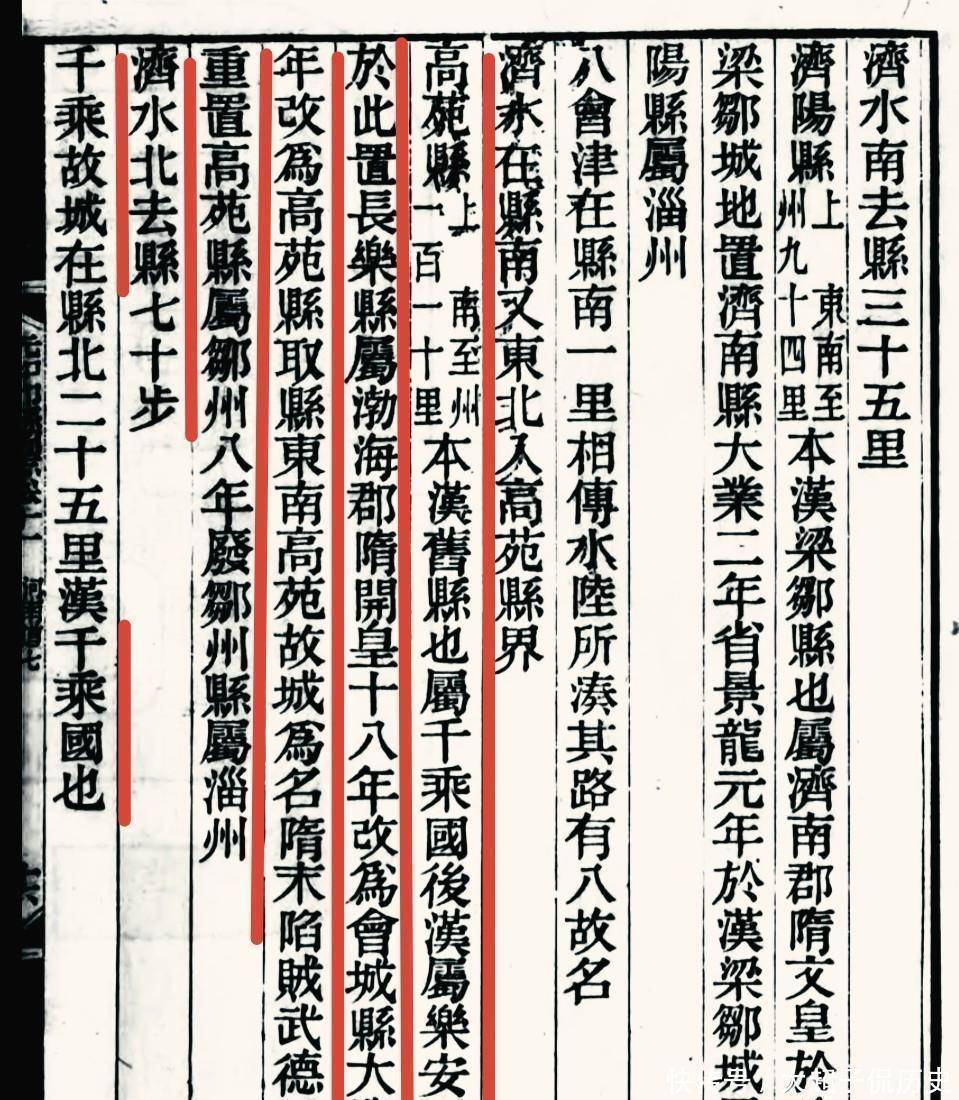 濟水南去縣三十五里
濟陽縣上東南至州九十四里本漢梁鄒縣也屬濟南郡隋文皇於
梁鄒城地置濟南縣大業二年省景龍元年於漢梁鄒城
陽縣屬淄州
八會津在縣南一里相傳水陸所湊其路有八故名
濟水在縣南又東北入高苑縣界
高苑縣上南至州一百一十里本漢舊縣也屬千乘國後漢屬樂安
於此置長樂縣屬渤海郡隋開皇十八年改為會城縣大
年改為高苑縣取縣東南高苑故城為名隋末陷賊武德
重置高苑縣屬鄒州八年廢鄒州縣屬淄州
濟水北去縣七十步
千乘故城在縣北二十五里漢千乘國也